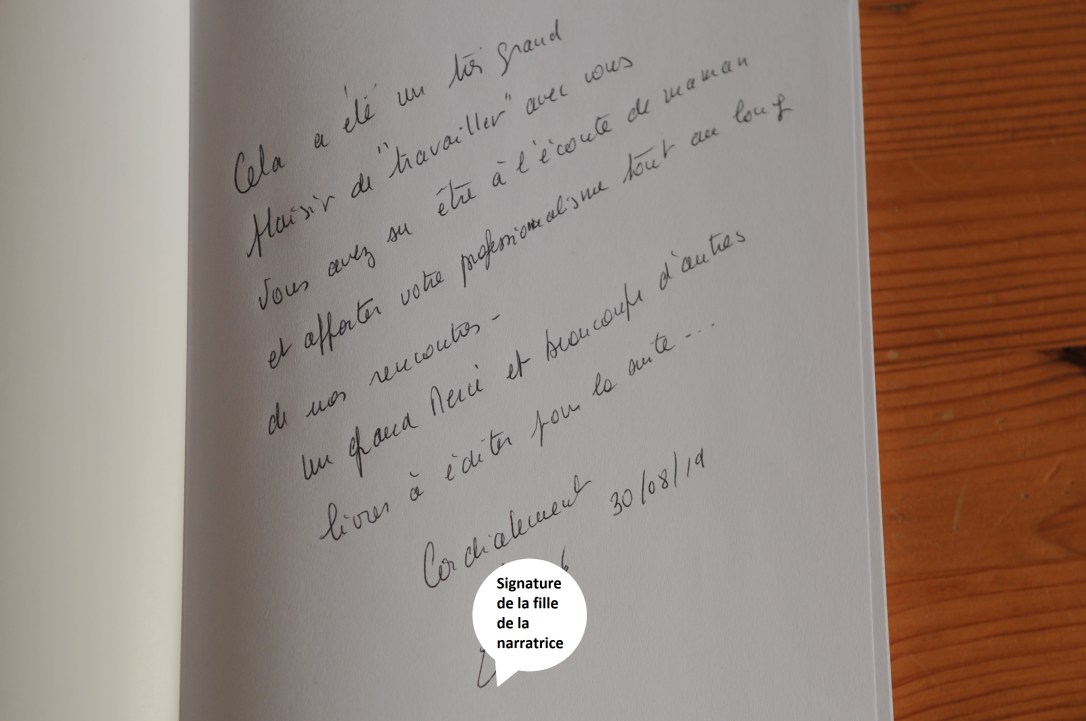 Cela a été un très grand
plaisir de "travailler" avec vous
Vous avez su être à l'écoute de maman
et apporter votre professionnalisme tout au long
de nos rencontres -
Un grand Merci et beaucoup d'autres
livres à éditer pour la suite ...
Cordialement 30/08/19
Signature
de la fille
de la
narratrice